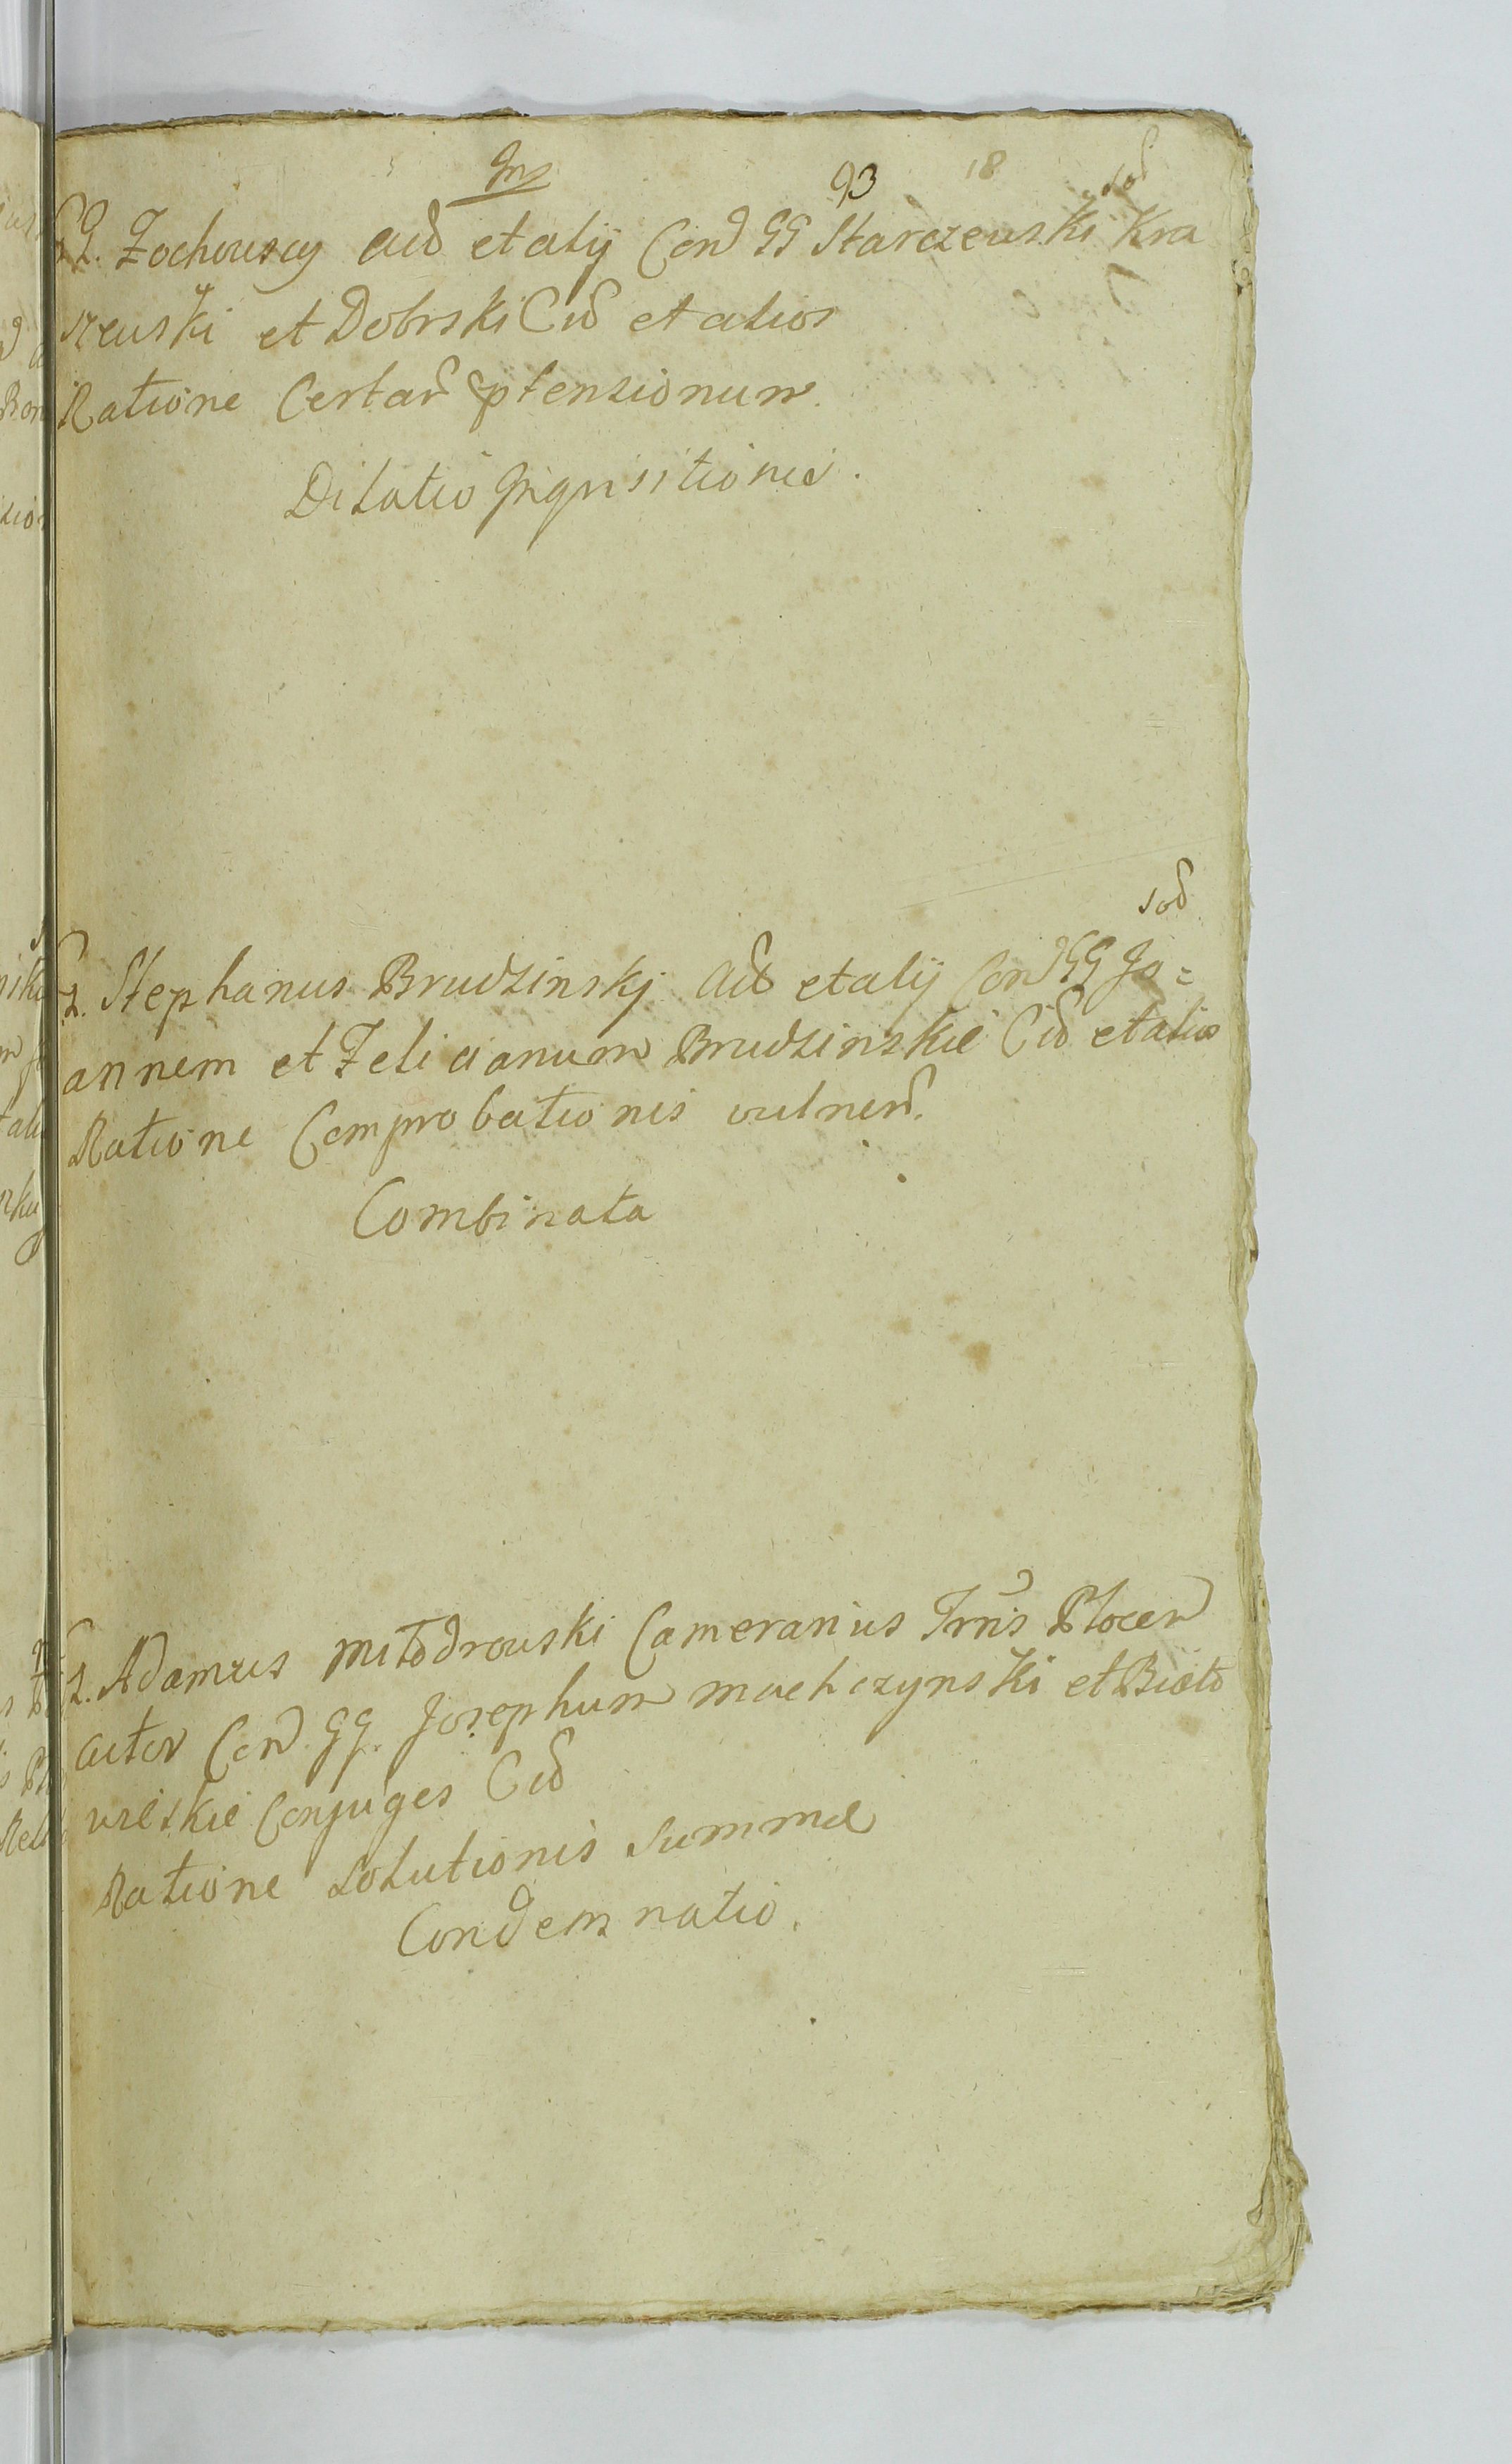 93 18
GG. Zochowscy Act et alij Con GG Starczewski Kra
szewski et Dobrski Cit et alios
Ratione Certar ptensionum.
Dilatio Inquisitionis.
G. Stephanus Brudzinskj Act et alij Con GG Jo=
annem et Felicianum Brudzinskie Cit et alios
Ratione Comprobationis vulner.
Combinata
G. Adamus Młodrowski Camerarius Trris Plocen
actor Con GG. Josephum Machczynski et Bioło
wieskie Conjuges Cit
Ratione solutionis summæ
Condemnatio.